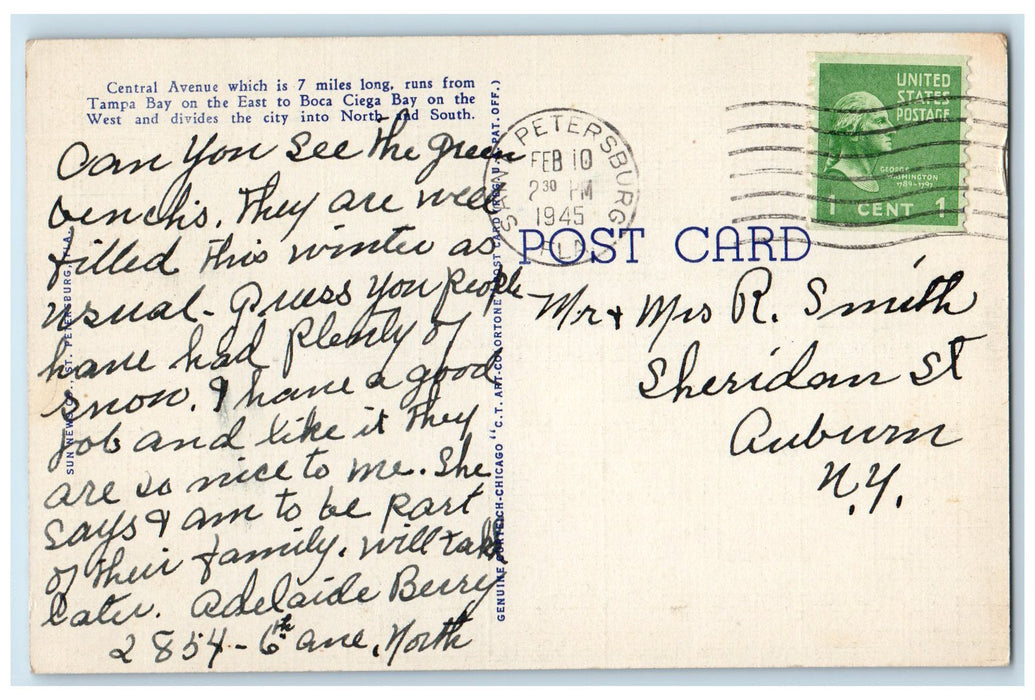 Central Avenue which is 7 miles long, runs from
Tampa Bay on the East to Boca Ciega Bay on the
West and divides the city into North and South.
Can you see the green
benchs. They are well
filled this winter as
usual. Guess you people
have had plenty of
snow. I have a good
job and like it they
are so nice to me. She
says I am to be part
of their family. will talk
later. Adelaide Berry
2854-6th ave, North
SUN NEWS CO., ST. PETERSBURG, FLA.
GENUINE CURTEICH-CHICAGO "C.T. ART-COLORTONE" POST CARD (REG. U.S. PAT. OFF.)
SAINT PETERSBURG
FEB 10
2 30 PM
1945
FLA.
UNITED
STATES
POSTAGE
GEORGE
WASHINGTON
1789-1797
1 CENT 1
POST CARD
Mr & Mrs R. Smith
Sheridan St
Auburn
N.Y.